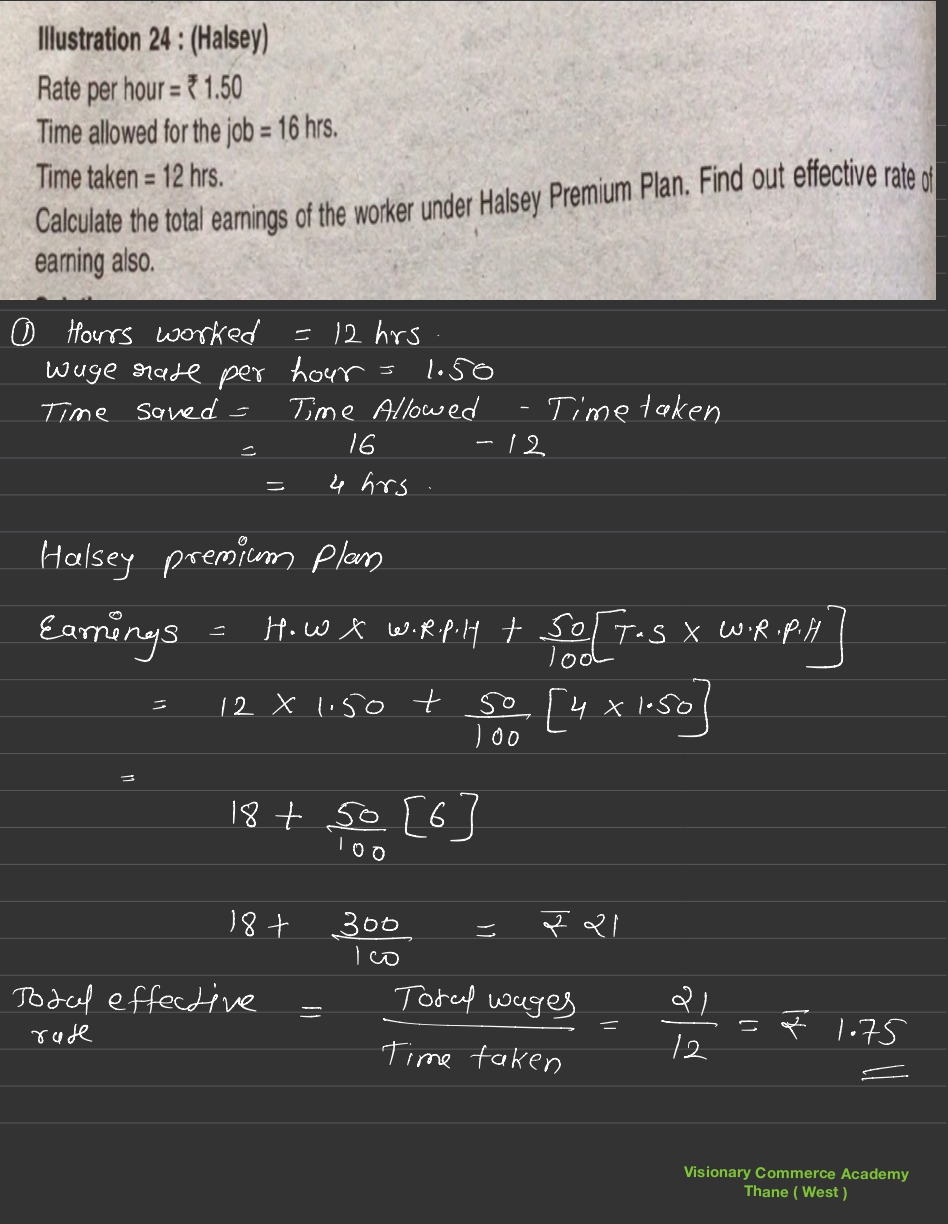 Illustration 24 : (Halsey)
Rate per hour = ₹ 1.50
Time allowed for the job = 16 hrs.
Time taken = 12 hrs.
Calculate the total earnings of the worker under Halsey Premium Plan. Find out effective rate of
earning also.
① Hours worked = 12 hrs.
Wage rate per hour = 1.50
Time saved = Time Allowed - Time taken
= 16 - 12
= 4 hrs.
Halsey premium Plan
Earnings = H.W X W.R.P.H + 50/100 [T.S X W.R.P.H]
= 12 X 1.50 + 50/100 [4 x 1.50]
=
18 + 50/100 [6]
18 + 300/100 = ₹ 21
Total effective rate = Total wages / Time taken = 21/12 = ₹ 1.75
Visionary Commerce Academy
Thane ( West )